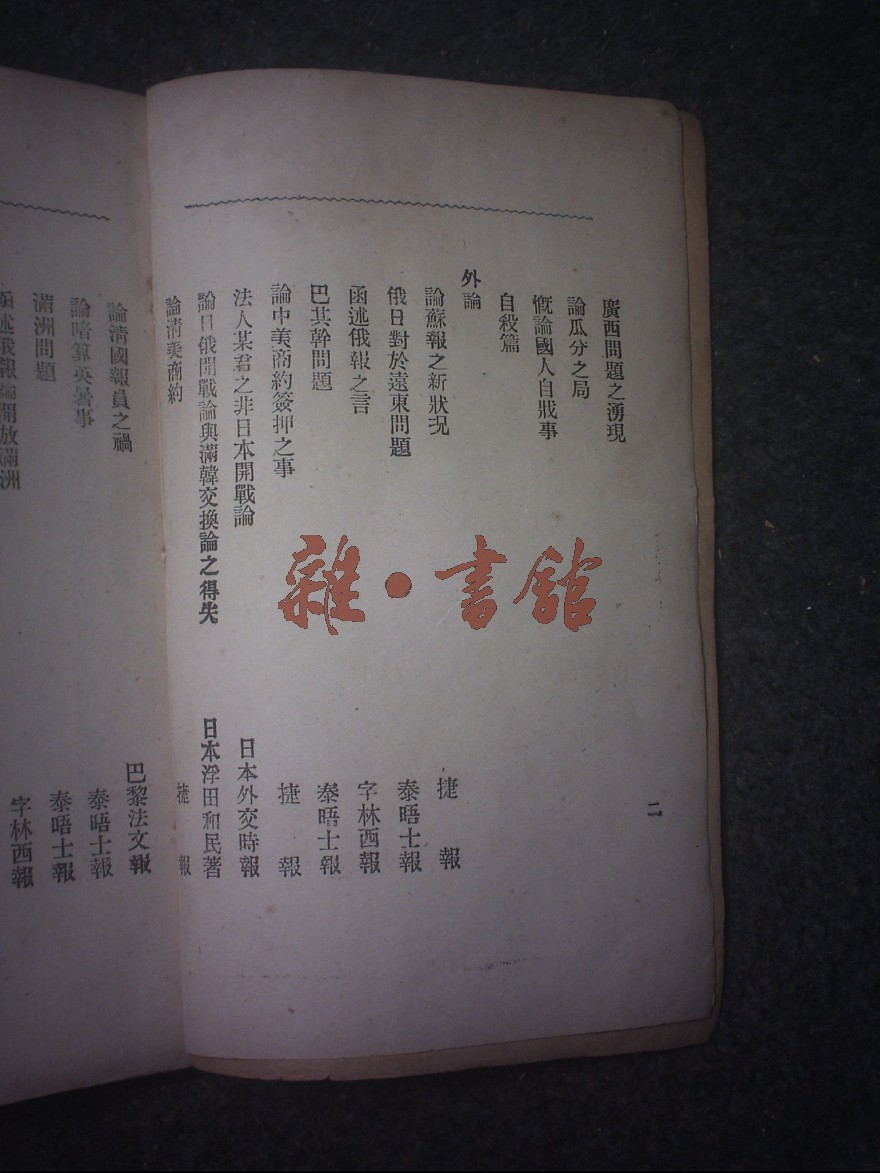 廣西問題之湧現
論瓜分之局
慨論國人自戕事
自殺篇
外論
論蘇報之新狀況 捷報
俄日對於遠東問題 泰晤士報
函述俄報之言 字林西報
巴其幹問題 泰晤士報
論中美商約簽押之事 捷報
法人某君之非日本開戰論 日本外交時報
論日俄開戰論與滿韓交換論之得失 日本浮田和民著
論清美商約 捷報
二
論清國報員之禍 巴黎法文報
論暗算英署事 泰晤士報
滿洲問題 泰晤士報
函述俄報論開放滿洲 字林西報
雜·書館